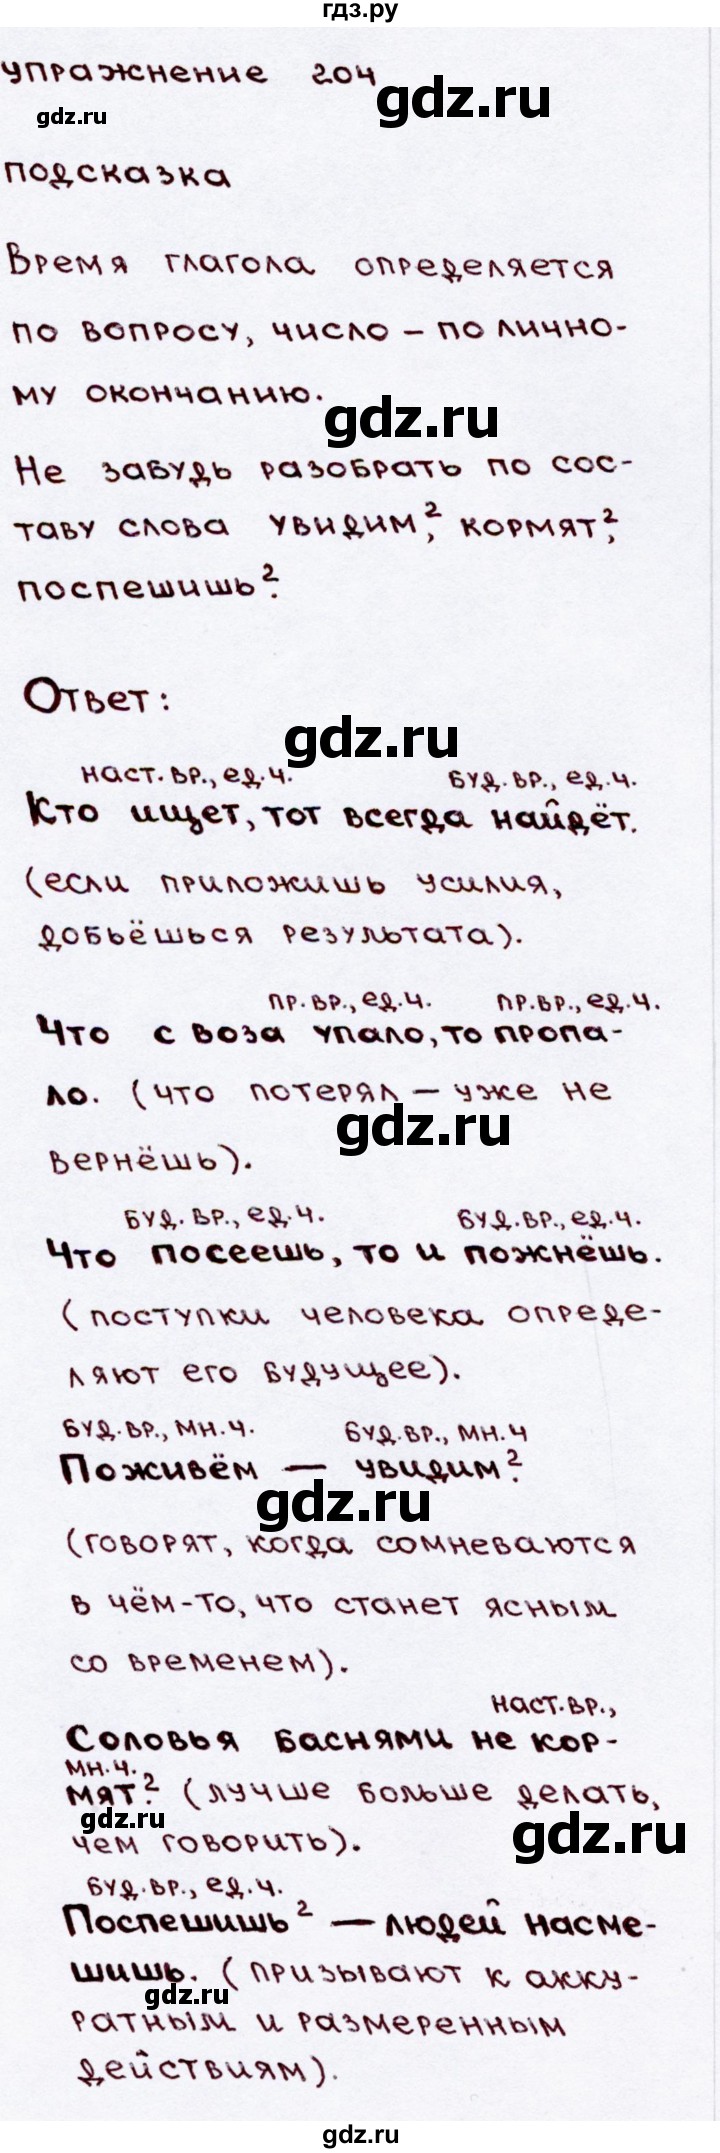 гдз.ру
упражнение 204
gdz.ru
gdz.ru
подсказка
Время глагола определяется
по вопросу, число – по лично-
му окончанию.
gdz.ru
Не забудь разобрать по сос-
таву слова увидим,² кормят,²
поспешишь.²
Ответ:
gdz.ru
наст. вр., ед.ч. буд. вр., ед.ч.
Кто ищет, тот всегда найдёт.
(если приложишь усилия,
добьёшься результата).
пр. вр., ед.ч. пр.вр., ед.ч.
Что с воза упало, то пропа-
ло. (что потерял – уже не
gdz.ru
вернёшь).
буд. вр., ед.ч. буд.вр., ед.ч.
Что посеешь, то и пожнёшь.
(поступки человека опреде-
ляют его будущее).
буд.вр., мн.ч. буд.вр., мн.ч
Поживём — увидим.²
gdz.ru
(говорят, когда сомневаются
в чём-то, что станет ясным
со временем).
наст.вр.,
Соловья баснями не кор-
мн.ч.
мят.² (лучше больше делать,
gdz.ru
gdz.ru
чем говорить).
буд.вр., ед.ч.
Поспешишь² — людей насме-
шишь. (призывают к акку-
gdz.ru
ратным и размеренным
действиям).
gdz.ru